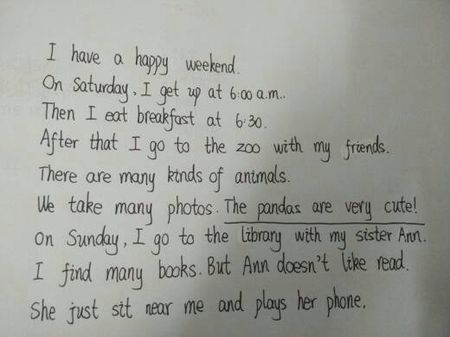 I have a happy weekend.
On Saturday, I get up at 6:00 a.m..
Then I eat breakfast at 6:30.
After that I go to the zoo with my friends.
There are many kinds of animals.
We take many photos. The pandas are very cute!
On Sunday, I go to the library with my sister Ann.
I find many books. But Ann doesn't like read.
She just sit near me and plays her phone.